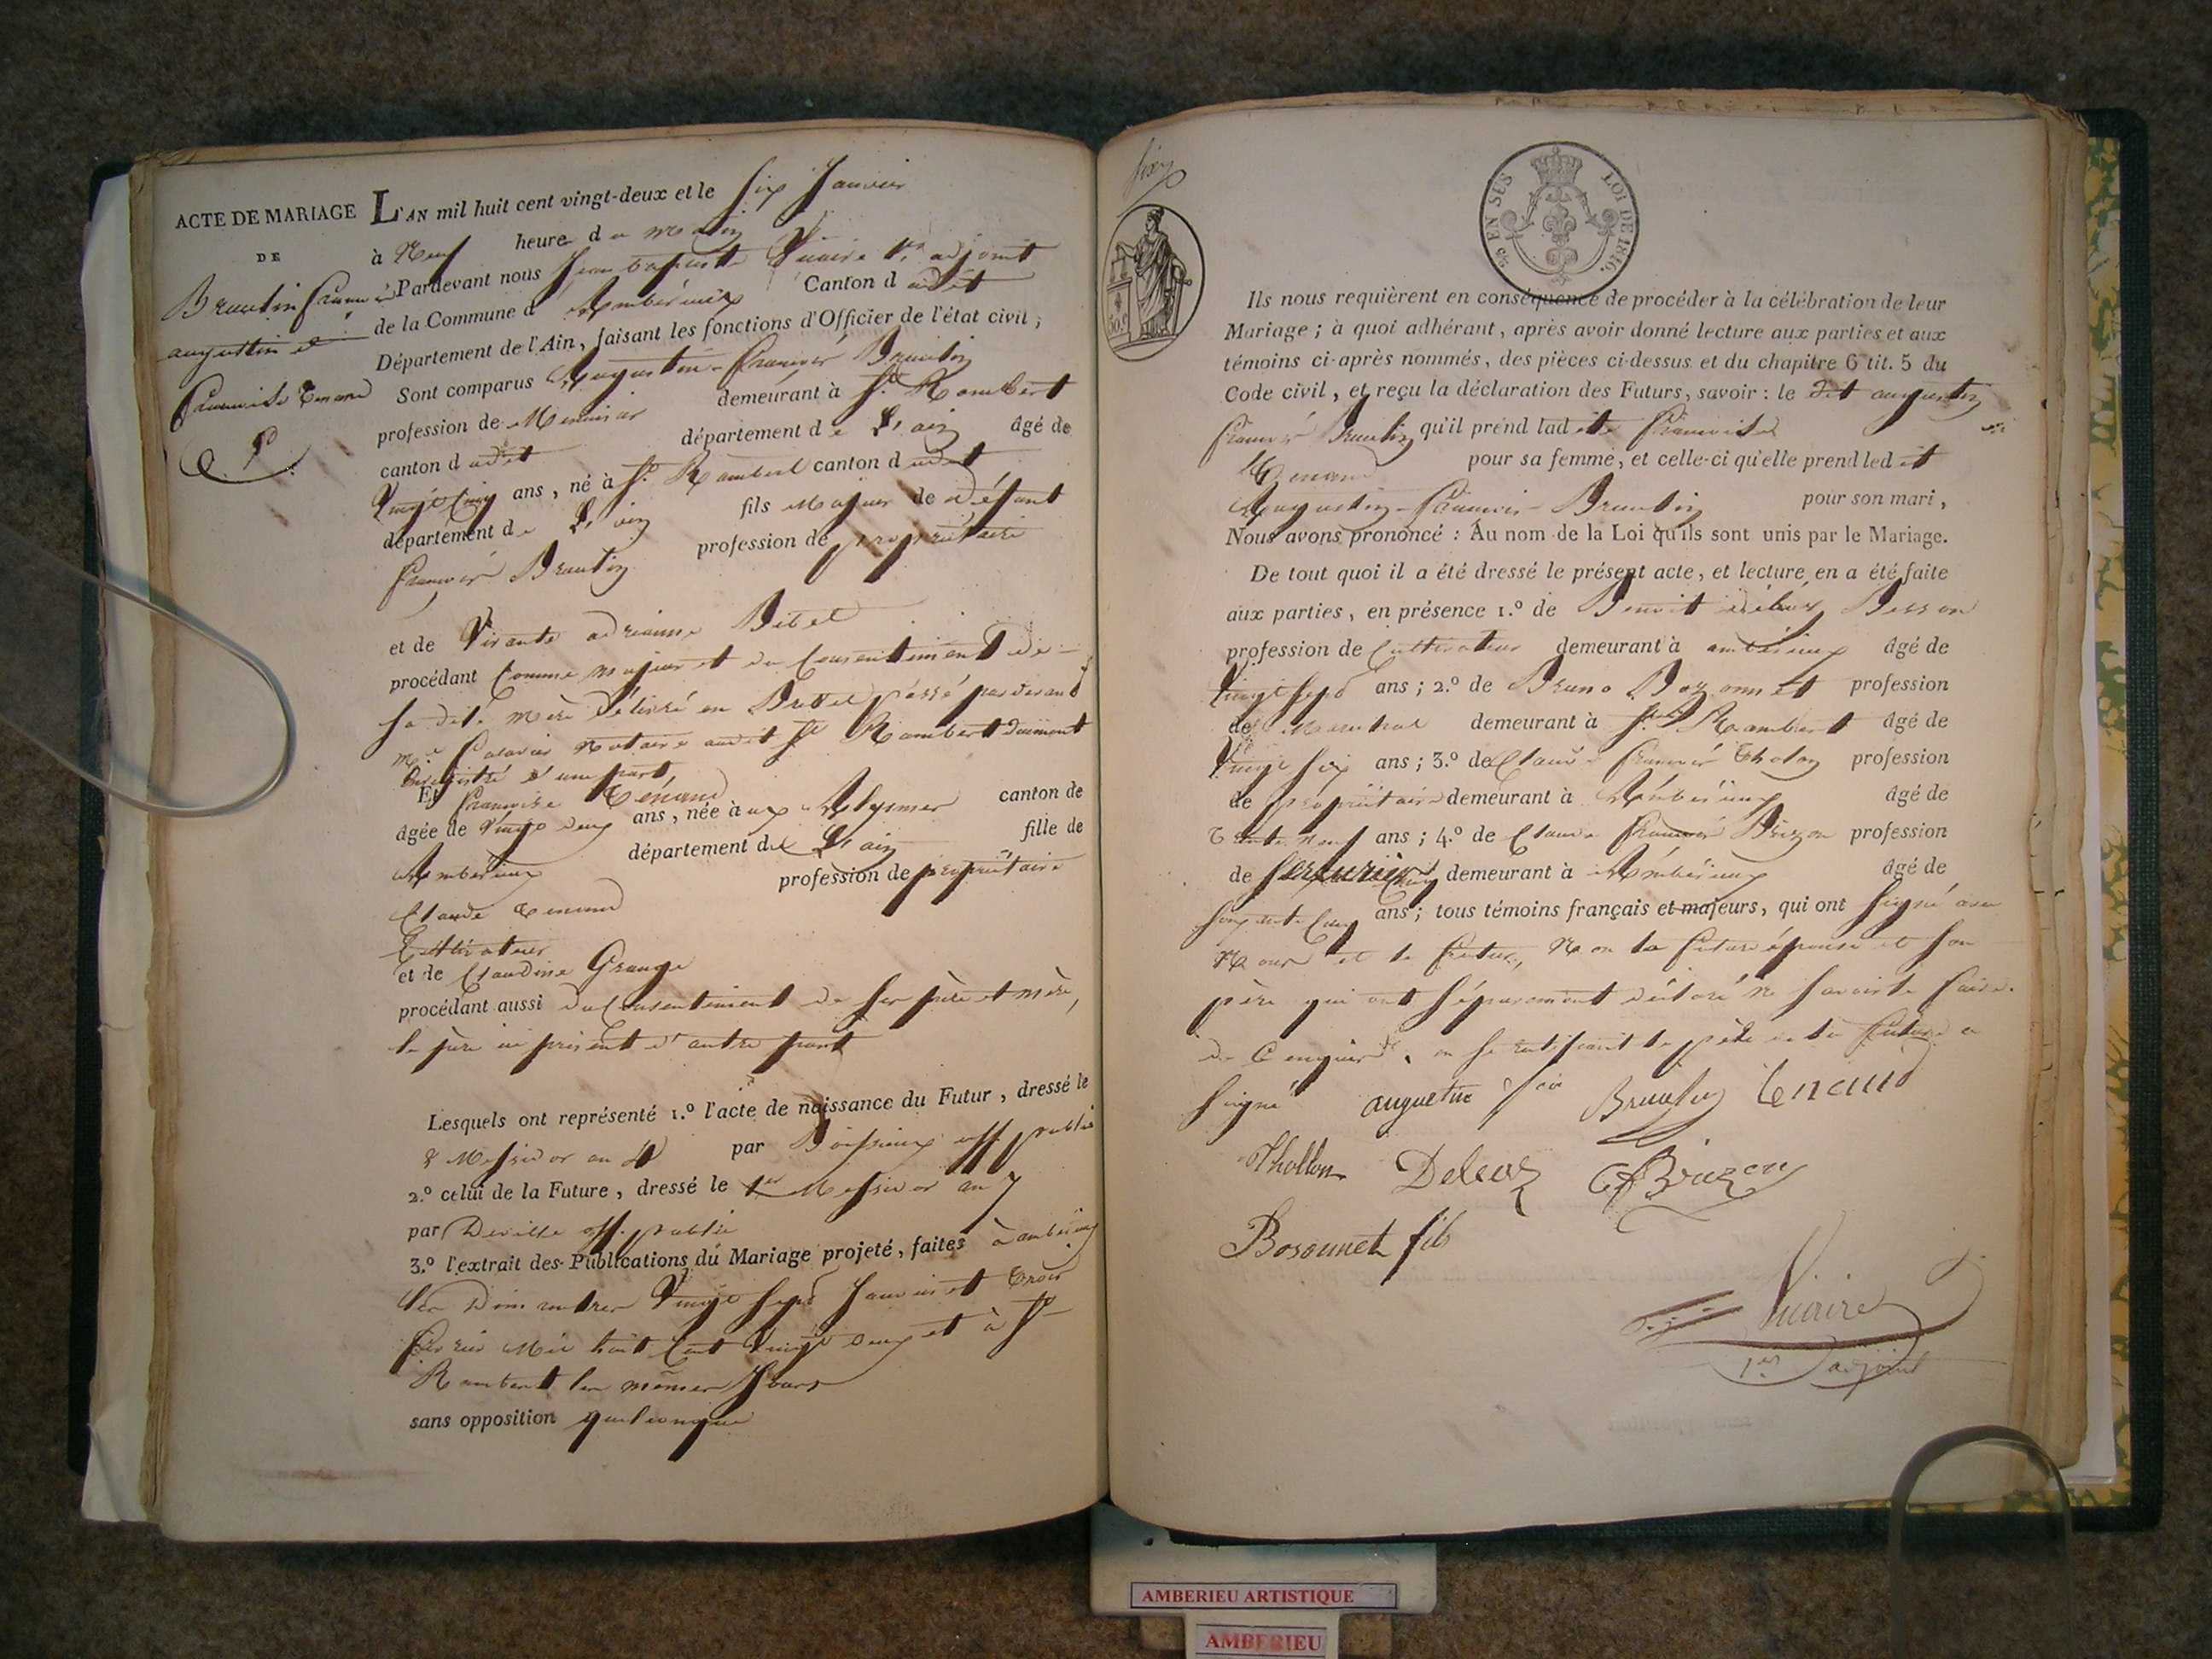 ACTE DE MARIAGE
DE
augustin et
L'AN mil huit cent vingt-deux et le six Janvier
à Neuf heure du matin
Pardevant nous Jean baptiste Vicaire 1er adjoint
de la Commune d'Ambérieux Canton dudit
Département de l'Ain, faisant les fonctions d'Officier de l'état civil;
Sont comparus Augustin françois
profession de Menuisier demeurant à St. Rambert
canton dudit département de L'ain âgé de
Vingt cinq ans, né à St. Rambert canton dudit
département de L'ain fils Majeur de défunt
françois profession de propriétaire
et de adrianne
procédant Comme majeur et du Consentement de
sa dite mère délivré en Brevet passé pardevant
me. Notaire audit St Rambert duement
Enregistré d'une part,
Et françoise Tenand
âgée de Vingt deux ans, née à aux Alymes canton de
Ambérieux département de L'ain fille de
Claude Tenand profession de propriétaire
Cultivateur
et de Claudine Grange
procédant aussi du Consentement de ses père et mère,
le père ici présent d'autre part
Lesquels ont représenté 1.º l'acte de naissance du Futur, dressé le
8 Messidor an 4 par off public
2.º celui de la Future, dressé le 1er Messidor an 7
par Deville off. public
3.º l'extrait des Publications du Mariage projeté, faites à ambérieux
les Dimanches Vingt sept Janvier et trois
février Mil huit Cent Vingt deux et à St
Rambert les mêmes Jours
sans opposition quelconque
EN SUS
LOI DE 1816.
50.c
Ils nous requièrent en conséquence de procéder à la célébration de leur
Mariage; à quoi adhérant, après avoir donné lecture aux parties et aux
témoins ci-après nommés, des pièces ci-dessus et du chapitre 6 tit. 5 du
Code civil, et reçu la déclaration des Futurs, savoir: le dit augustin
françois qu'il prend ladite françoise
Tenand pour sa femme, et celle-ci qu'elle prend ledit
Augustin françois pour son mari,
Nous avons prononcé: Au nom de la Loi qu'ils sont unis par le Mariage.
De tout quoi il a été dressé le présent acte, et lecture en a été faite
aux parties, en présence 1.º de Benoit
profession de Cultivateur demeurant à ambérieux âgé de
Vingt sept ans; 2.º de Bruno Bozonnet profession
de demeurant à St. Rambert âgé de
Vingt six ans; 3.º de Claude françois Tholon profession
de propriétaire demeurant à Ambérieux âgé de
Trente neuf ans; 4.º de Claude françois Brizon profession
de serrurier demeurant à Ambérieux âgé de
Soixante Cinq ans; tous témoins français et majeurs, qui ont signé avec
Nous et le futur, Non la future épouse et son
père qui ont séparément déclaré ne savoir le faire
de Ce enquis. en se ratifiant le père de la future a
signé augustin Tenand
Thollon CFBrizon
Bosonnet fils
Vicaire
1er adjoint
AMBERIEU ARTISTIQUE
AMBERIEU